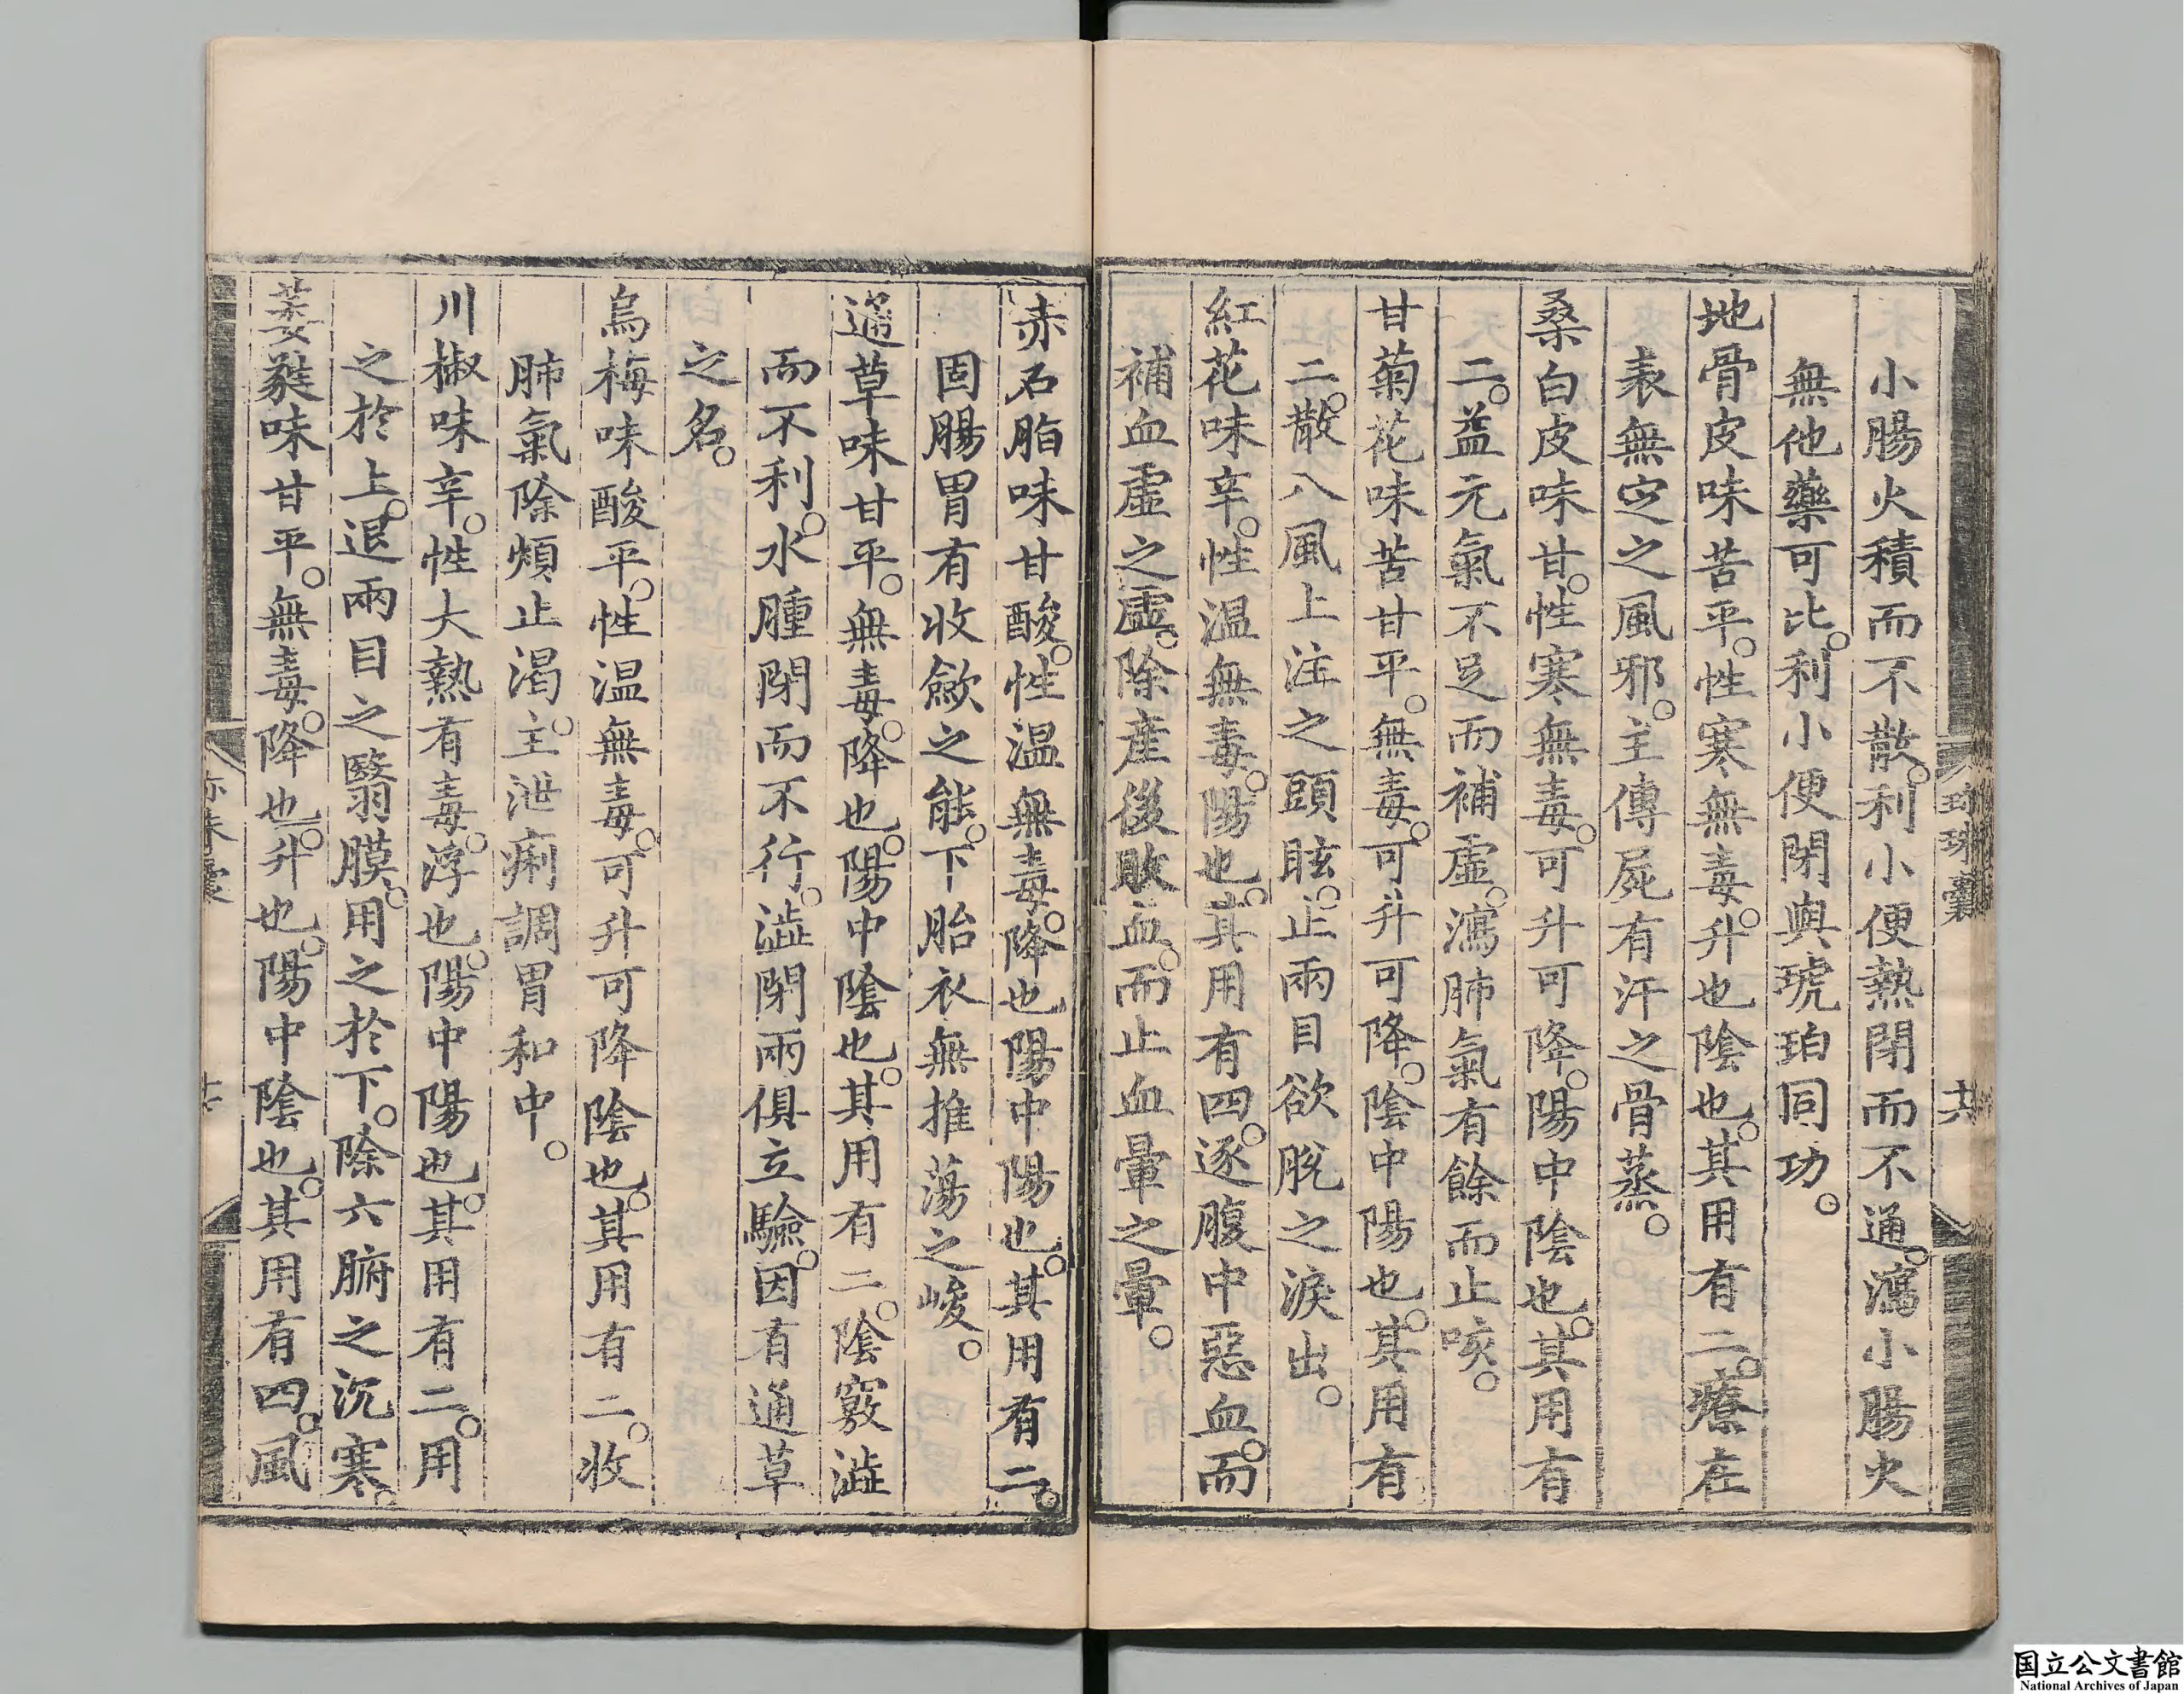 小腸火積而不散。利小便熱閉而不通。瀉小腸火
無他藥可比。利小便閉與琥珀同功。
地骨皮味苦平。性寒無毒。升也陰也。其用有二。療在
表無定之風邪。主傳屍有汗之骨蒸。
桑白皮味甘。性寒無毒。可升可降。陽中陰也。其用有
二。益元氣不足而補虛。瀉肺氣有餘而止咳。
甘菊花味苦甘平。無毒。可升可降。陰中陽也。其用有
二。散八風上注之頭眩。止兩目欲脫之淚出。
紅花味辛。性温無毒。陽也。其用有四。逐腹中惡血。而
補血虛之虛。除產後敗血。而止血暈之暈。
赤石脂味甘酸。性温無毒。降也陽中陽也。其用有二。
固腸胃有收斂之能。下胎衣無推蕩之峻。
通草味甘平。無毒。降也。陽中陰也。其用有二。陰竅澁
而不利。水腫閉而不行。澁閉兩俱立驗。因有通草
之名。
烏梅味酸平。性温無毒。可升可降陰也。其用有二。收
肺氣除煩止渴。主泄痢調胃和中。
川椒味辛。性大熱有毒。浮也。陽中陽也。其用有二。用
之於上。退兩目之翳膜。用之於下。除六腑之沉寒。
葳蕤味甘平。無毒。降也。升也。陽中陰也。其用有四。風
珍珠囊
国立公文書館
National Archives of Japan